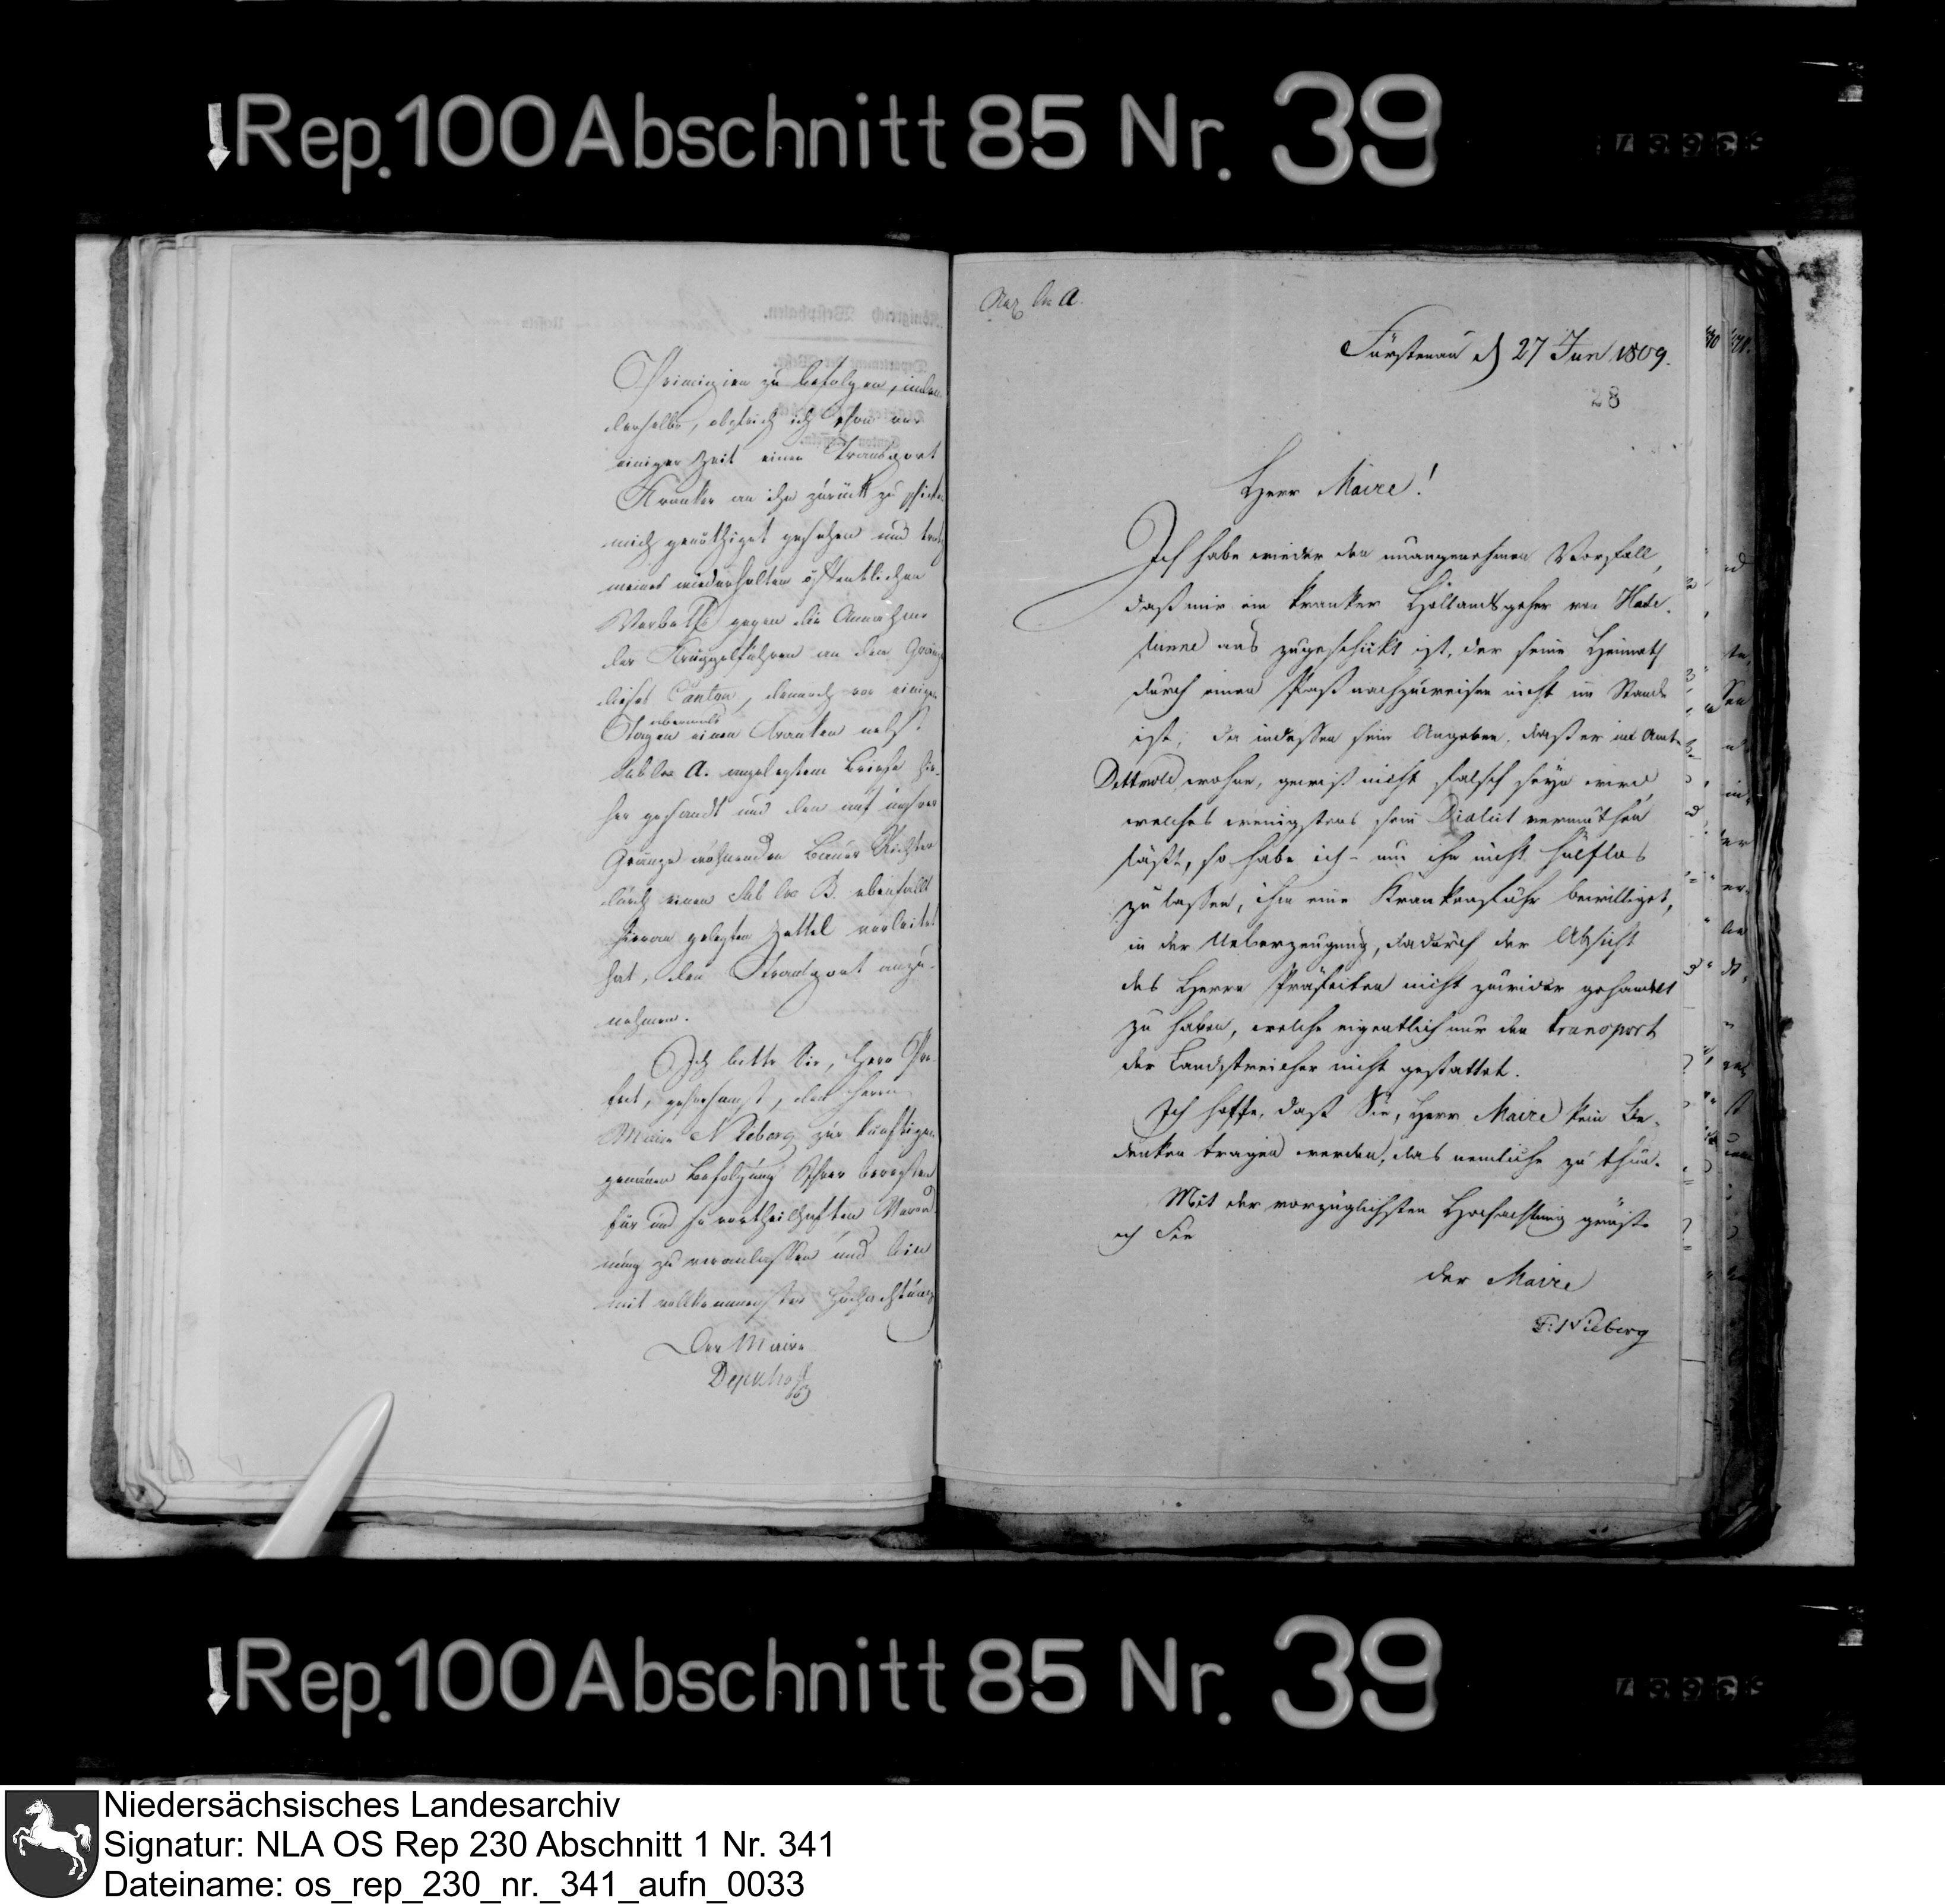 Rep. 100 Abschnitt 85 Nr. 39
Principien zu befolgen, indem
derselbe, obgleich ich schon vor
einiger Zeit einen Transport
Kranker an ihn zurück zu schicken
mich genöthiget gesehen und trotz
meines wiederholten öffentlichen
Verboths gegen die Annahme
der Krüppelfuhren an den Gränzen
dieses Canton, dennoch vor einigen
Tagen abermals einen Kranken nebst
sub Lra A. angelegtem Briefe hie-
her gesandt und den auf unserer
Gränze wohnenden Bauer Richter
durch einen sub Lra B. ebenfalls
hieran gelegten Zettel verleitet
hat, den Transport anzu-
nehmen.
Ich bitte Sie, Herr Prä-
fect, gehorsamst, den Herrn
Maire Nieberg zur künftigen
genauen Befolgung Ihrer
für uns so vortheilhaften Verord-
nung zu veranlassen und bin
mit vollkommenster Hochachtung
Der Maire
Anz Lra A.
Fürstenau d 27 Jun 1809.
28
Herr Maire!
Ich habe wieder den unangenehmen Vorfall,
daß mir ein kranker Hollandsgeher von
aus zugeschickt ist, der seine Heimath
durch einen Paß nachzuweisen nicht im Stande
ist; da indessen sein Angeben, daß er im Amte
Dettmold wohne, gewiß nicht falsch seyn wird,
welches wenigstens sein Dialect vermuthen
läßt, so habe ich - um ihn nicht hülflos
zu lassen, ihm eine Krankenfuhr bewilliget,
in der Ueberzeugung, dadurch der Absicht
des Herrn Präfecten nicht zuwider gehandelt
zu haben, welche eigentlich nur den transport
der Landstreicher nicht gestattet.
Ich hoffe, daß Sie, Herr Maire kein Be-
denken tragen werden, das nemliche zu thun.
Mit der vorzüglichsten Hochachtung grüße
ich Sie
der Maire
Nieberg
Rep. 100 Abschnitt 85 Nr. 39
Niedersächsisches Landesarchiv
Signatur: NLA OS Rep 230 Abschnitt 1 Nr. 341
Dateiname: os_rep_230_nr._341_aufn_0033